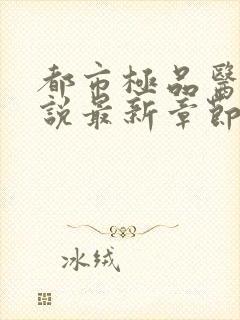 都市極品醫
說最新章節
冰绒